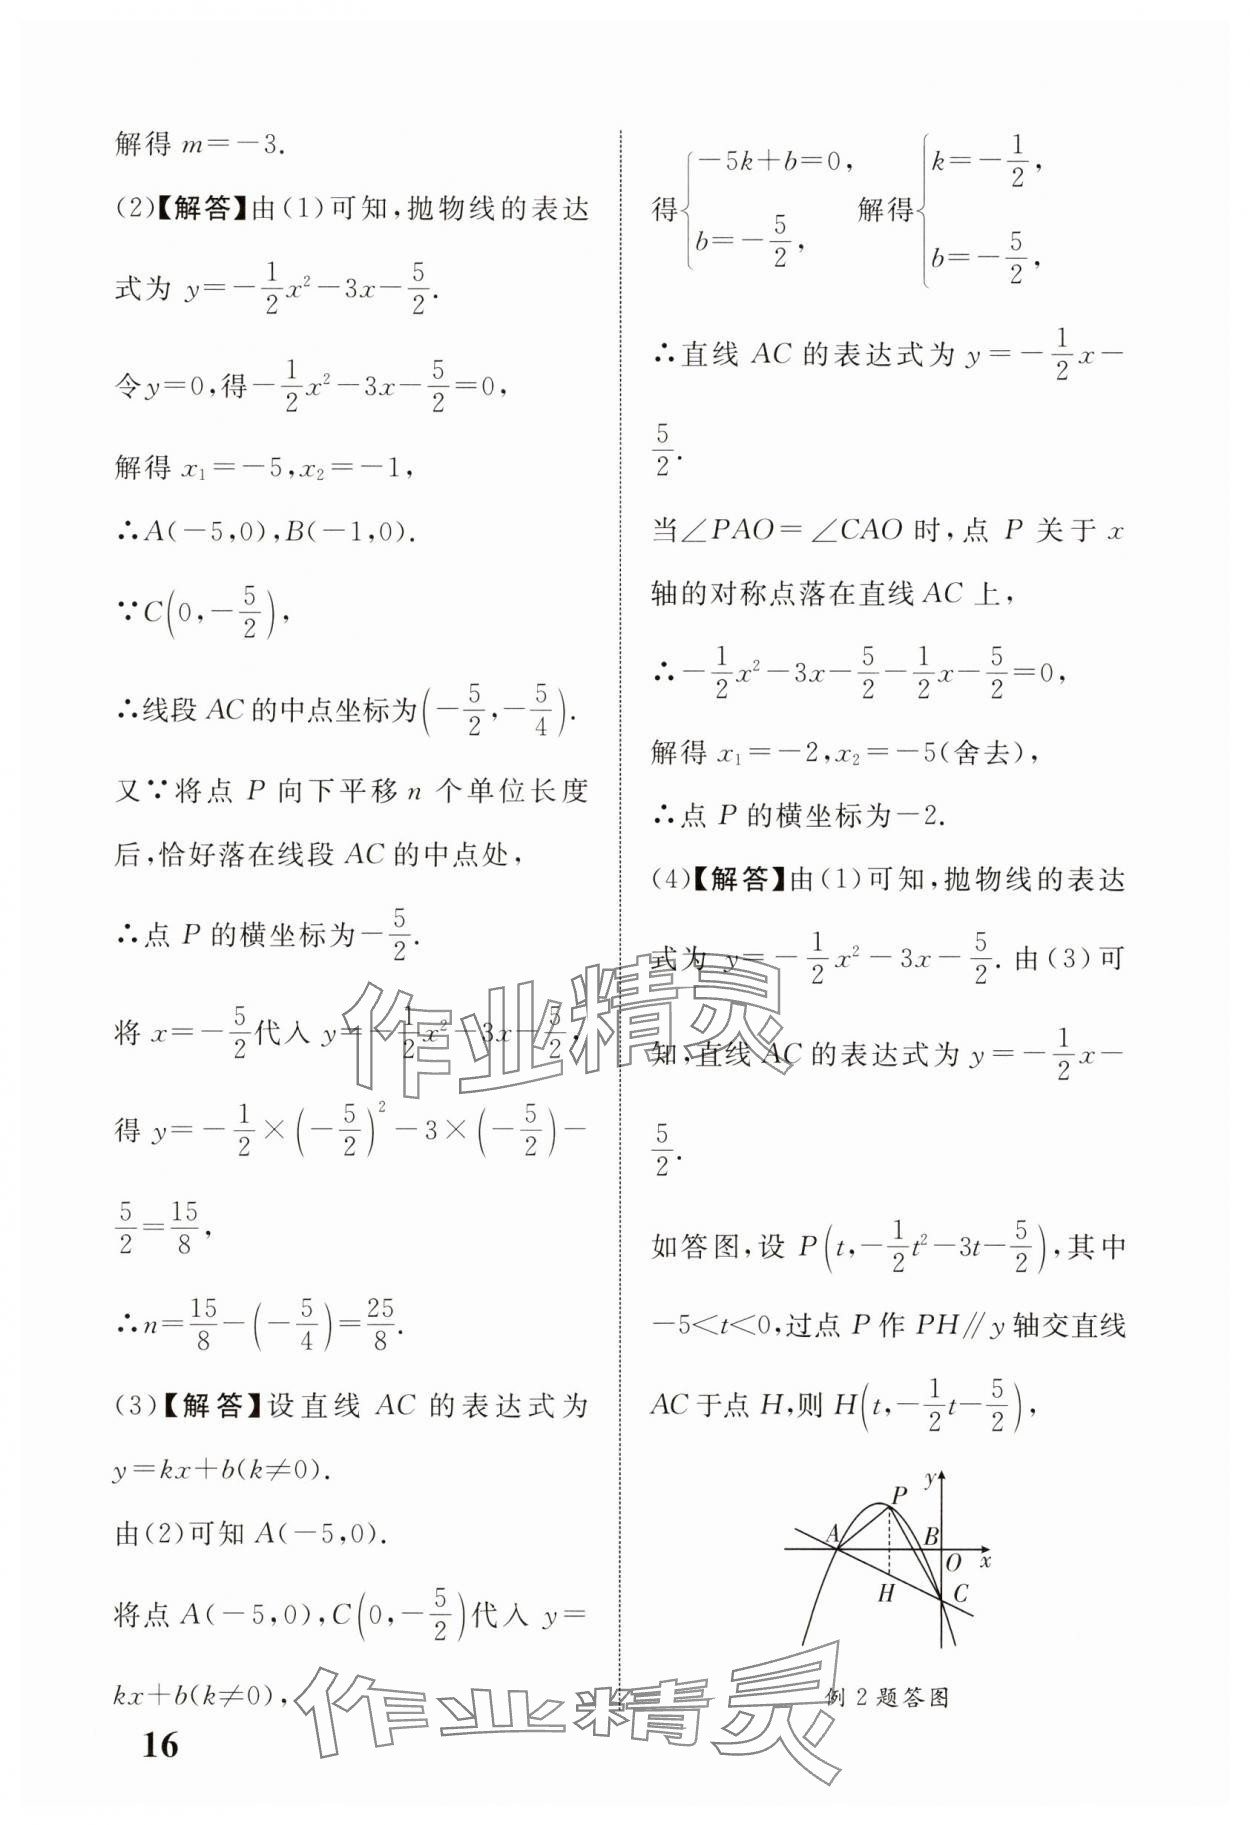 解得 m=-3.
(2)【解答】由(1)可知,抛物线的表达
式为 y=-1/2x²-3x-5/2.
令y=0,得-1/2x²-3x-5/2=0,
解得 x₁=-5,x₂=-1,
∴A(-5,0),B(-1,0).
∵C(0,-5/2),
∴线段 AC 的中点坐标为(-5/2,-5/4).
又∵将点 P 向下平移 n 个单位长度
后,恰好落在线段 AC 的中点处,
∴点 P 的横坐标为-5/2.
将 x=-5/2代入 y=-1/2x²-3x-5/2,
得 y=-1/2×(-5/2)²-3×(-5/2)-
5/2=15/8,
∴n=15/8-(-5/4)=25/8.
(3)【解答】设直线 AC 的表达式为
y=kx+b(k≠0).
由(2)可知 A(-5,0).
将点 A(-5,0),C(0,-5/2)代入 y=
kx+b(k≠0),
16
得{-5k+b=0, b=-5/2, 解得{k=-1/2, b=-5/2,
∴直线 AC 的表达式为 y=-1/2x-
5/2.
当∠PAO=∠CAO 时,点 P 关于 x
轴的对称点落在直线 AC 上,
∴-1/2x²-3x-5/2-1/2x-5/2=0,
解得 x₁=-2,x₂=-5(舍去),
∴点 P 的横坐标为-2.
(4)【解答】由(1)可知,抛物线的表达
式为 y=-1/2x²-3x-5/2.由(3)可
知,直线 AC 的表达式为 y=-1/2x-
5/2.
如答图,设 P(t,-1/2t²-3t-5/2),其中
-5<t<0,过点 P 作 PH∥y 轴交直线
AC 于点 H,则 H(t,-1/2t-5/2),
y
P
A
B
O
x
H
C
例 2 题答图
作业精灵
作业精灵